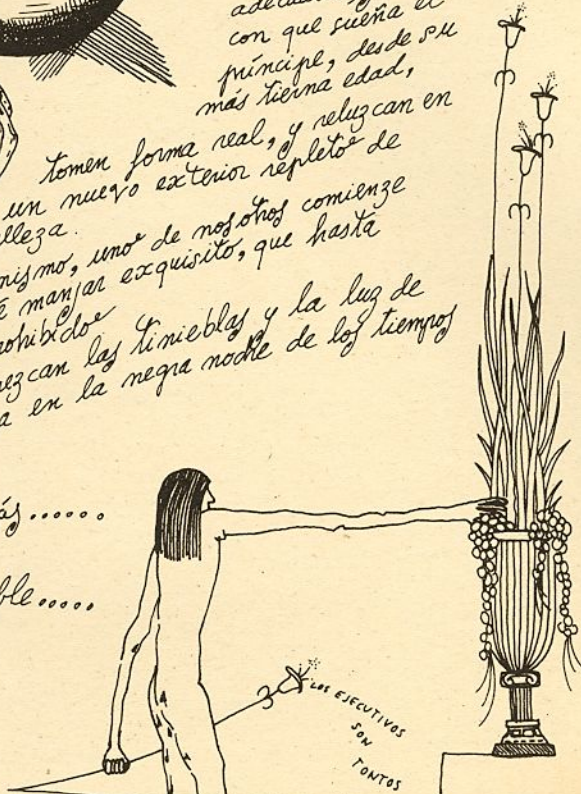 adecua
con que sueña el
príncipe, desde su
más tierna edad,
tomen forma real, y reluzcan en
un nuevo exterior repleto de
lleza.
nismo, uno de nosotros comienze
é manjar exquisito, que hasta
rohibido
ezcan las tinieblas y la luz de
a en la negra noche de los tiempos
ás......
ble.....
LOS EJECUTIVOS
SON
TONTOS